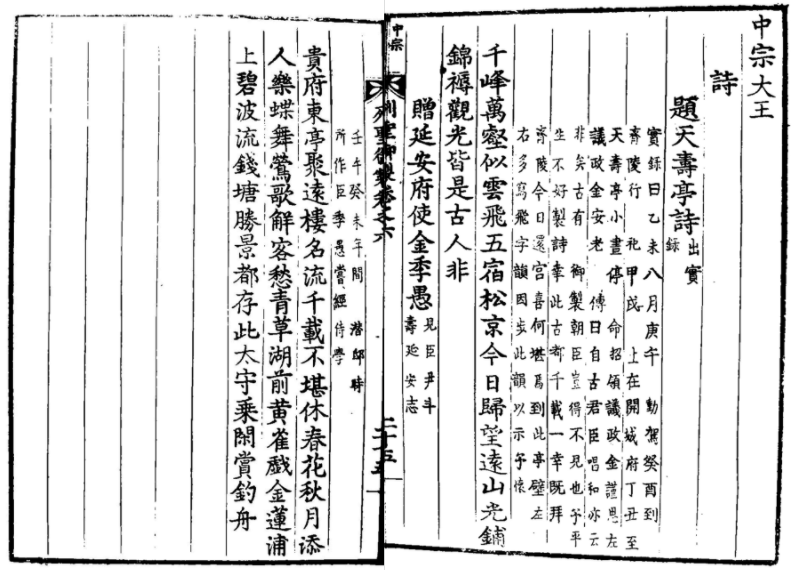 中宗大王
詩
題天壽亭詩出實
錄
實錄曰乙未八月庚午 動駕癸酉到
齊陵行 祀甲戌 上在開城府丁丑至
天壽亭小晝停 命招領議政金謹思左
議政金安老 傳曰自古君臣唱和亦云
非矣古有 御製朝臣豈得不見也予平
生不好製詩幸此古都千載一幸旣拜
齊陵今日還宮喜何堪焉到此亭壁左
右多寫飛字韻因步此韻以示予懷
千峰萬壑似雲飛五宿松京今日歸望遠山光鋪
錦褥觀光皆是古人非
贈延安府使金季愚見臣尹斗
壽延安志
中宗
列聖御製卷之六
二十五
壬午癸未年間 潛邸時
所作臣季愚嘗經侍學
貴府東亭聚遠樓名流千載不堪休春花秋月添
人樂蝶舞鶯歌解客愁青草湖前黃雀戲金蓮浦
上碧波流錢塘勝景都存此太守乘閑賞釣舟